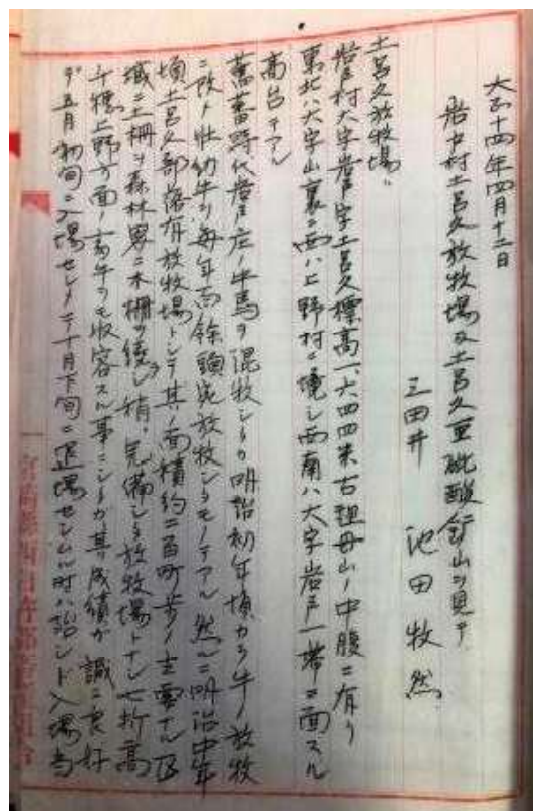 大正十四年四月十二日
岩戸村土呂久放牧場及土呂久亜砒酸鉱山ヲ見テ
三田井 池田牧然
土呂久放牧場ハ
岩戸村大字岩戸字土呂久標高一、六四四米古祖母山ノ中腹ニ有リ
東北ハ大字山裏ニ西ハ上野村ニ境シ西南ハ大字岩戸一帯ニ面スル
高台デアル
旧藩時代岩戸庄ノ牛馬ヲ混牧シタガ明治初年頃カラ牛ノ放牧
ニ改メ牡幼牛ヲ毎年百余頭宛放牧シタモノデアル 然ルニ明治中年
頃土呂久部落有放牧場トシテ其ノ面積約二百町歩ノ主要ナル区
域ニ土柵ヲ森林界ニ木柵ヲ繞シ稍々完備シタ放牧場トナシ七折高
千穂上野方面ノ畜牛ヲモ収容スル事ニシタガ其成績ガ誠ニ良好
デ五月初旬ニ入場セシメテ十月下旬ニ退場セシムル時ハ殆ンド入場当
宮崎県西臼杵郡畜産組合